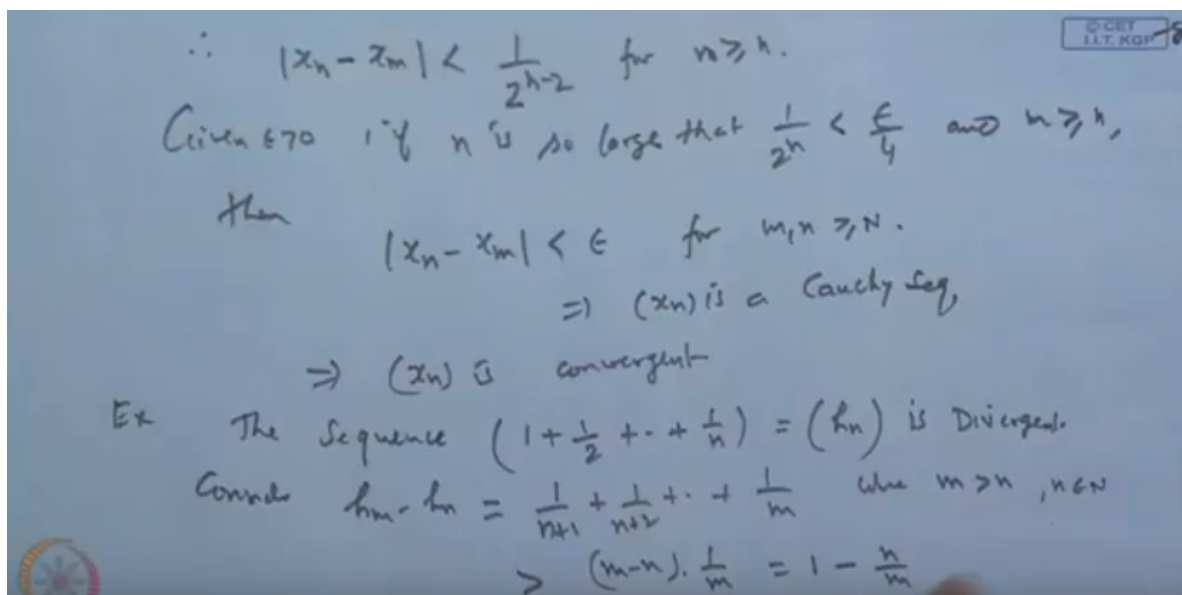 © CET
I.I.T. KGP
∴ |xn - xm| < 1/2^(n-2) for m ≥ n.
Given ε > 0 if n is so large that 1/2^n < ε/4 and m ≥ n,
then
|xn - xm| < ε for m, n ≥ N.
=> (xn) is a Cauchy Seq,
=> (xn) is convergent
Ex The Sequence (1 + 1/2 + .. + 1/n) = (hn) is Divergent.
hm - hn = 1/(n+1) + 1/(n+2) + .. + 1/m m > n, n ∈ N
> (m-n). 1/m = 1 - n/m